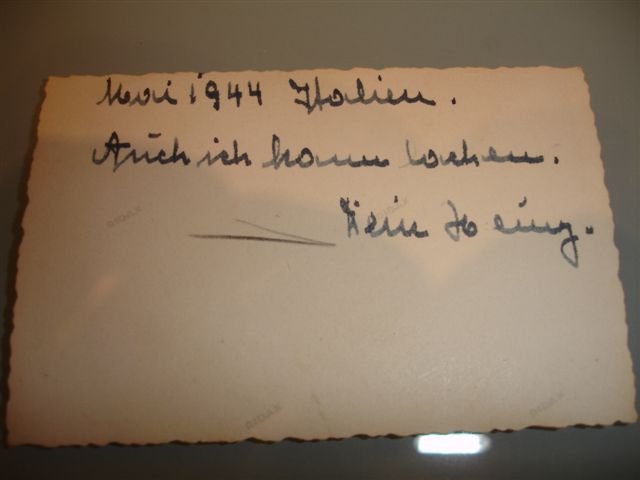 Mai 1944 Italien.
Auch ich kann lachen.
Dein Heinz.